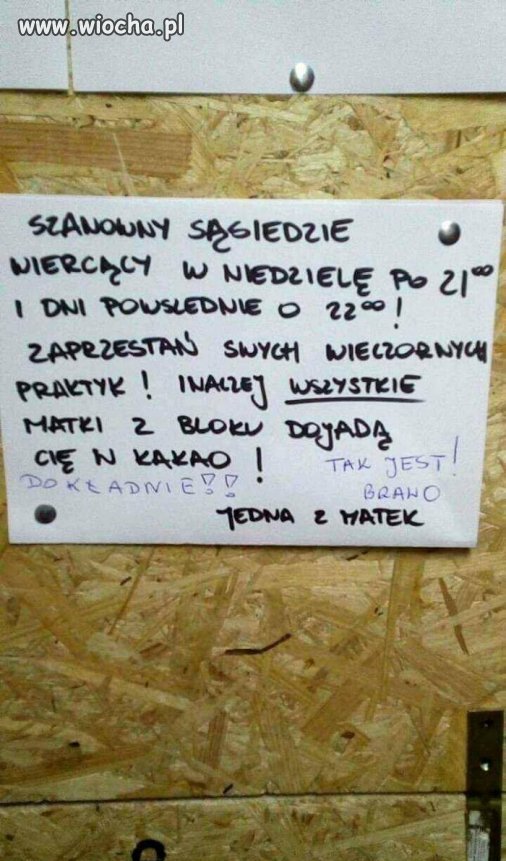 www.wiocha.pl
SZANOWNY SĄSIEDZIE
WIERCĄCY W NIEDZIELĘ PO 21⁰⁰
I DNI POWSLEDNIE O 22⁰⁰!
ZAPRZESTAŃ SWYCH WIECZORNYCH
PRAKTYK! INACZEJ WSZYSTKIE
MATKI Z BLOKU DOJADĄ
CIĘ W KAKAO!
TAK JEST!
DOKŁADNIE!!
BRAWO
JEDNA Z MATEK